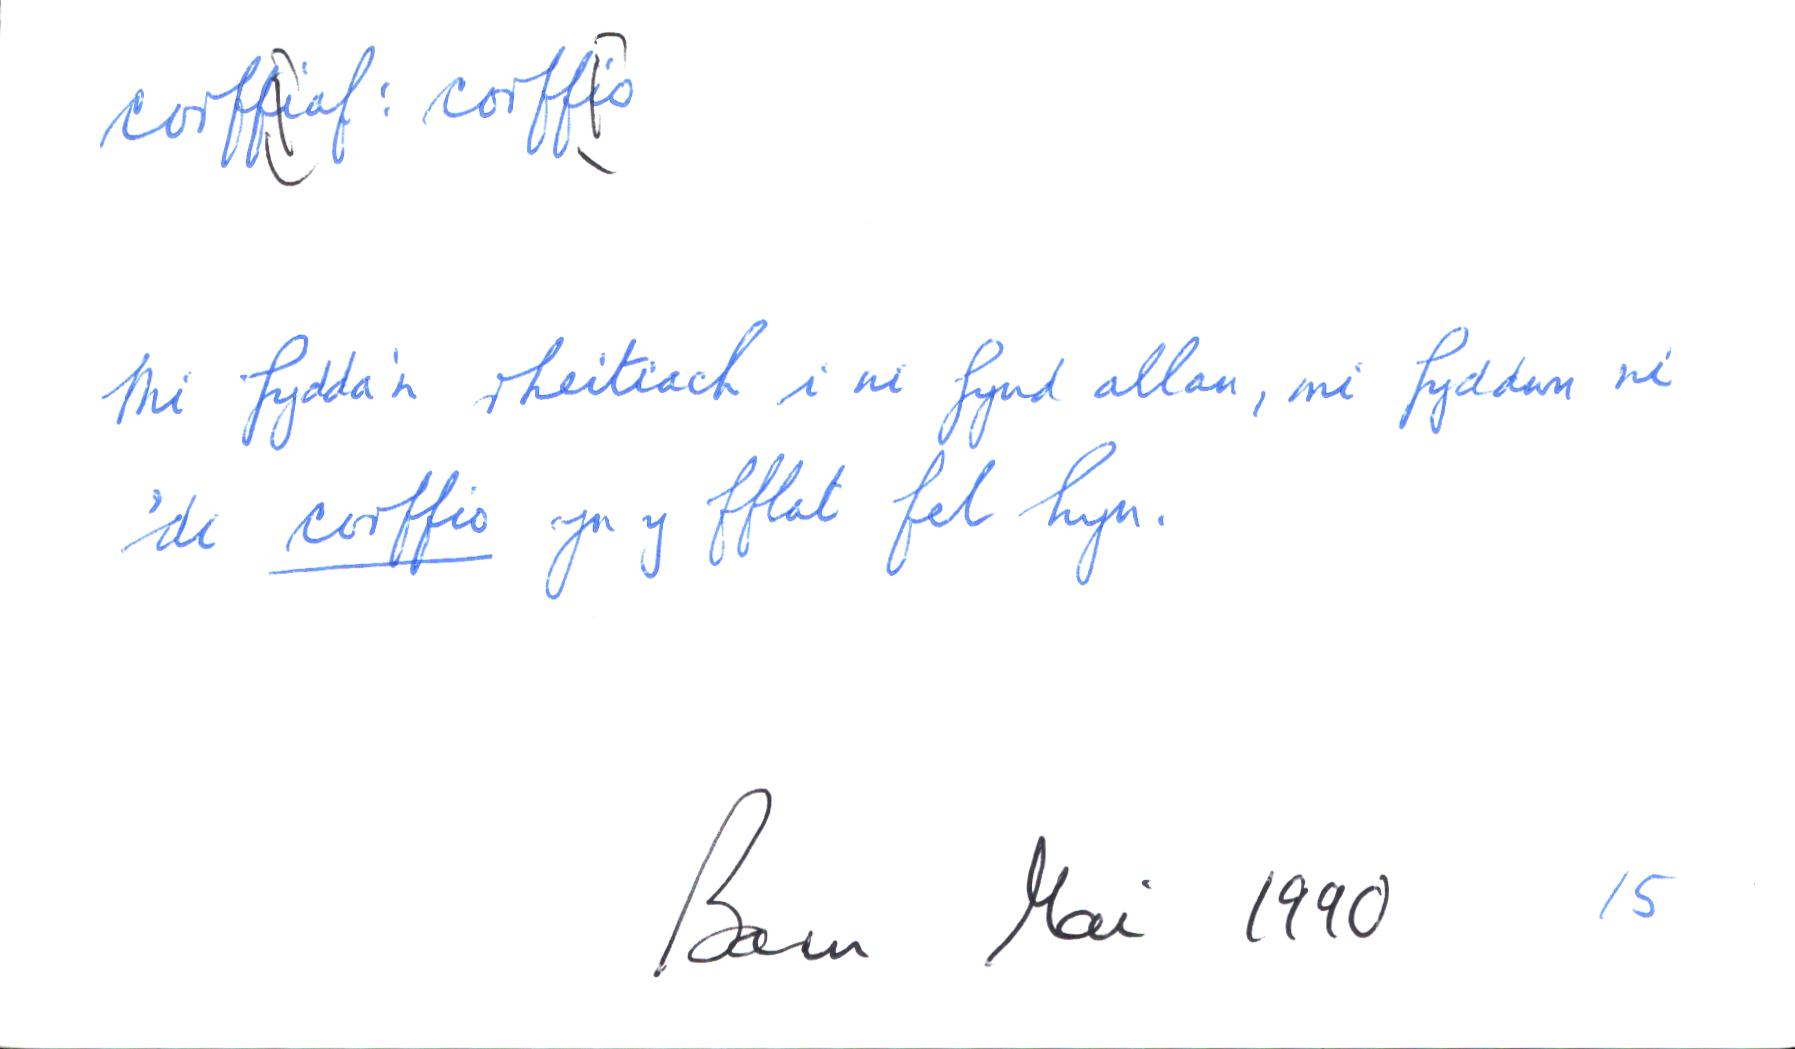 corff(i)af: corff(i)o
Mi fydda'n rheitiach i ni fynd allan, mi fyddwn ni
'di corffio yn y fflat fel hyn.
Barn Mai 1990 15